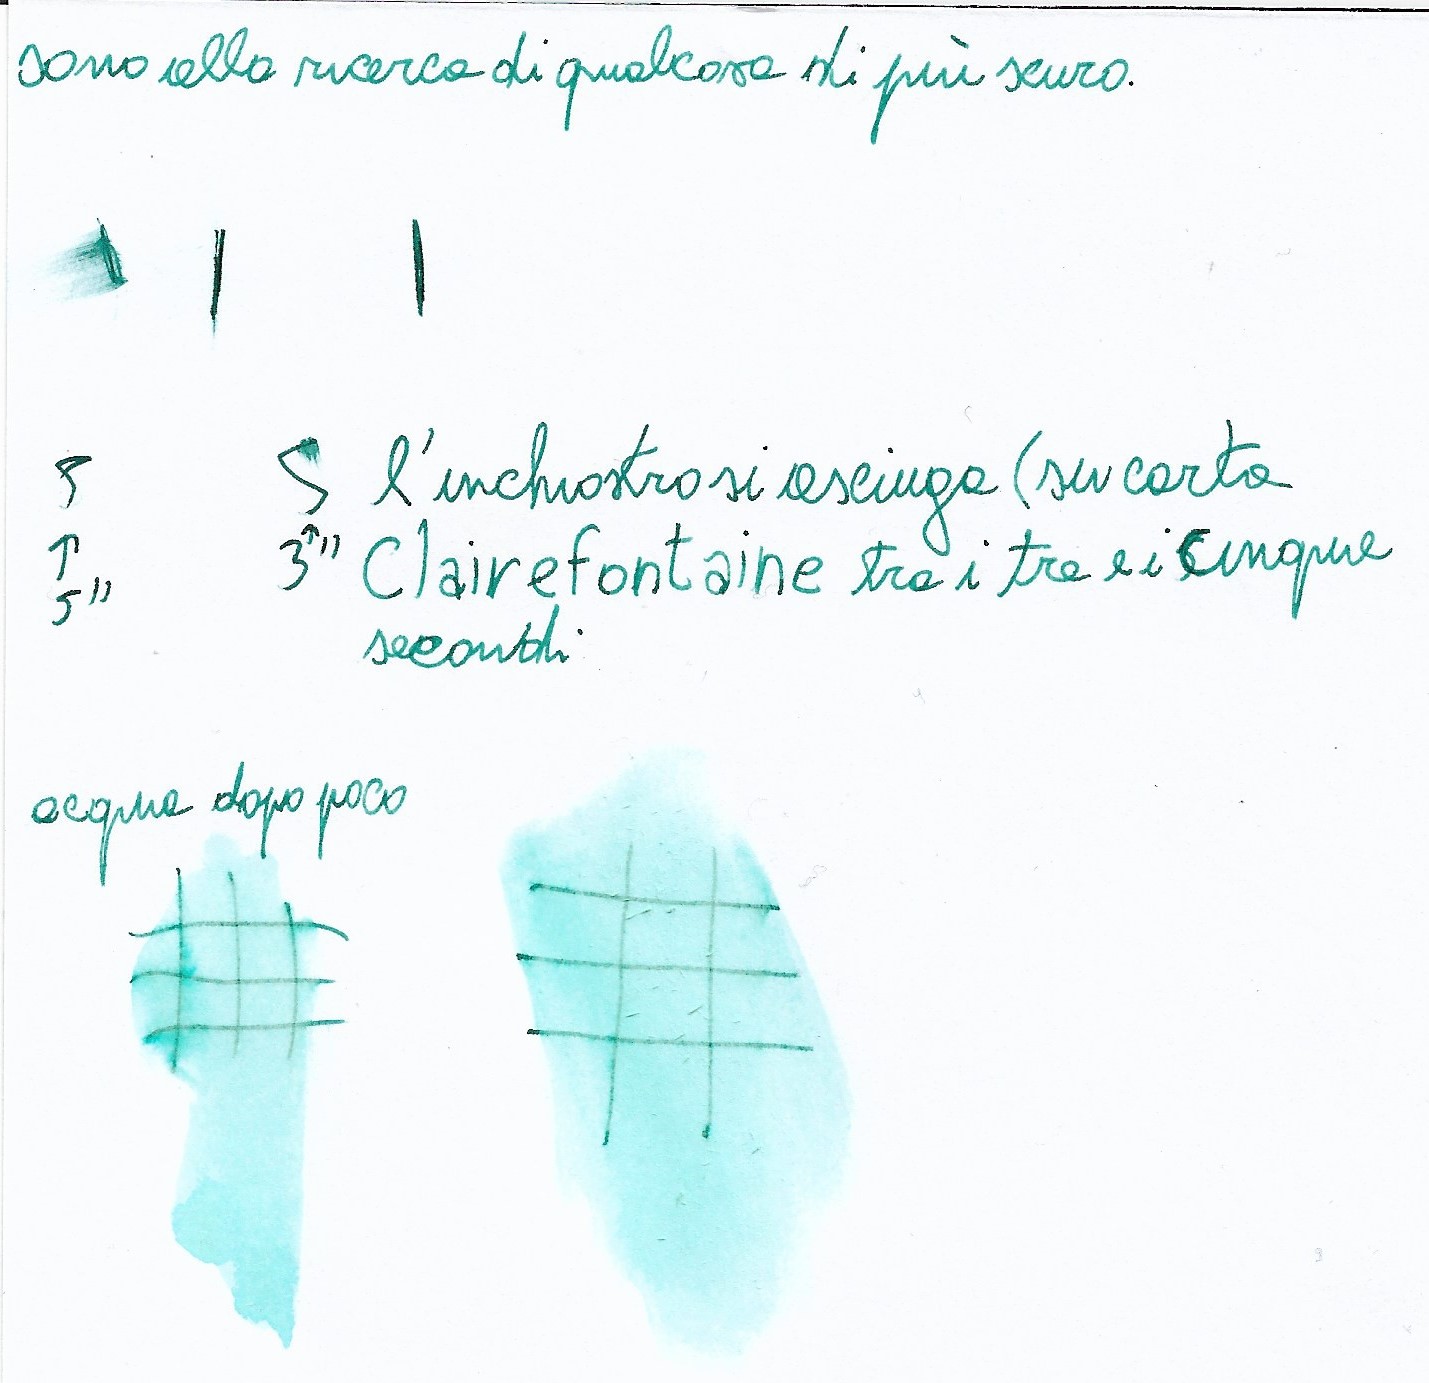 sono alla ricerca di qualcosa di più scuro.
5 5 l'inchiostro si asciuga (su carta
↑ ↑
5" 3" Clairefontaine tra i tre e i cinque
secondi
acqua dopo poco